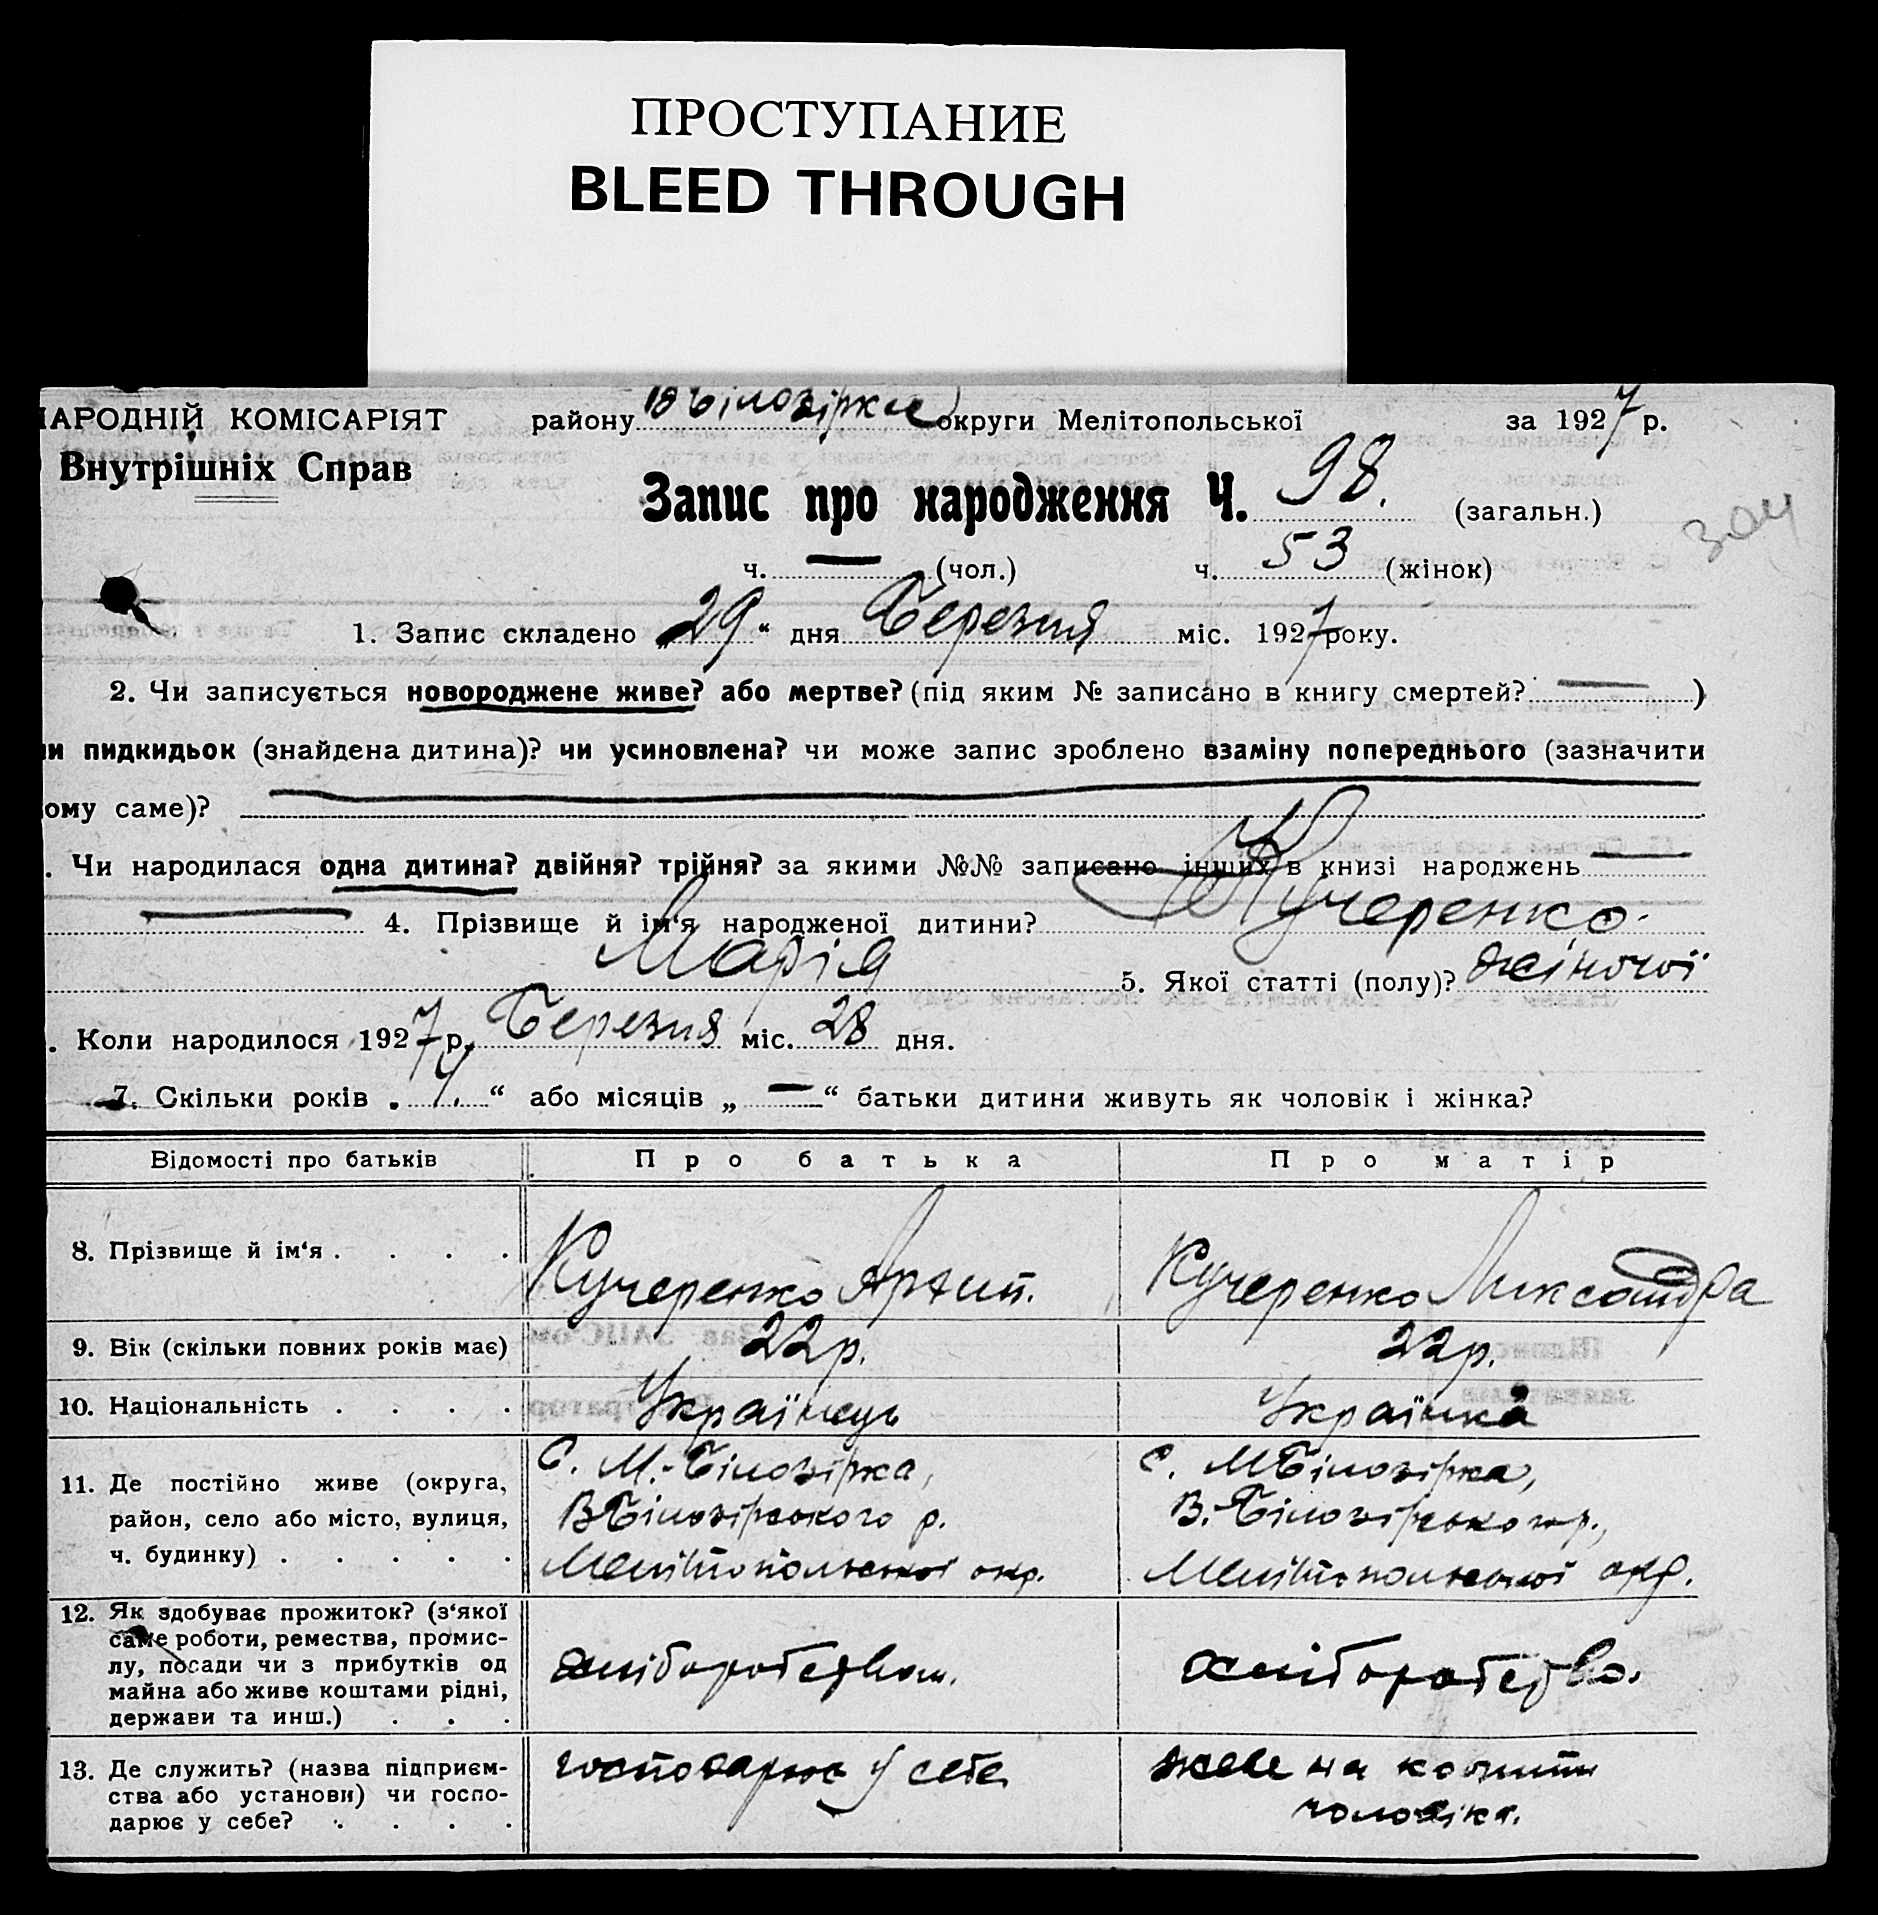 ПРОСТУПАНИЕ
BLEED THROUGH
НАРОДНІЙ КОМІСАРІЯТ району В Білозірка округи Мелітопольської за 1927 р.
Внутрішніх Справ
Запис про народження Ч. 98. (загальн.)
ч. — (чол.) ч. 53 (жінок)
1. Запис складено „29“ дня Березня міс. 1927 року.
2. Чи записується новороджене живе? або мертве? (під яким № записано в книгу смертей? — )
чи пидкидьок (знайдена дитина)? чи усиновлена? чи може запис зроблено взаміну попереднього (зазначити
кому саме)?
. Чи народилася одна дитина? двійня? трійня? за якими №№ записано інших в книзі народжень —
— 4. Прізвище й ім‘я народженої дитини? Кучеренко
Марія 5. Якої статті (полу)? жіночої
. Коли народилося 1927 р. Березня міс. 28 дня.
7. Скільки років „ 4. “ або місяців „ — “ батьки дитини живуть як чоловік і жінка?
Відомості про батьків Про батька Про матір
8. Прізвище й ім‘я . . . . Кучеренко Архип. Кучеренко Ликсандра
9. Вік (скільки повних років має) 22 р. 22 р.
10. Національність . . . . Українець Українка
11. Де постійно живе (округа, С. М.-Білозірка, с. МБілозірка,
район, село або місто, вулиця, ВБілозірського р. В.-Білозірського р.,
ч. будинку) . . . . . Мелітопольської окр. Мелітопольської окр.
12. Як здобуває прожиток? (з‘якої
саме роботи, ремества, промис-
лу, посади чи з прибутків од хліборобством. хліборобство.
майна або живе коштами рідні,
держави та инш.) . . .
13. Де служить? (назва підприєм- господарює у себе живе на кошти
ства або установи) чи госпо- чоловіка.
дарює у себе? . . . .